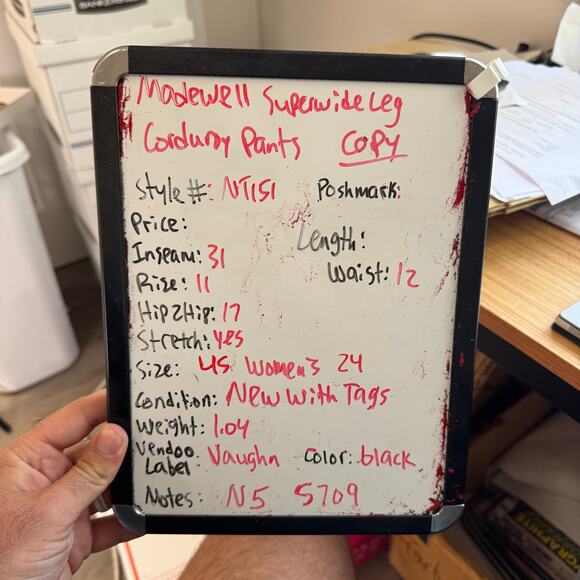 BANKERS BOX
Madewell Superwide Leg
Corduroy Pants COPY
Style #: NT151 Poshmark:
Price:
Length:
Inseam: 31
Waist: 12
Rise: 11
Hip2Hip: 17
Stretch: yes
Size: US Women's 24
Condition: New With Tags
Weight: 1.04
Vendoo Label: Vaughn Color: black
Notes: N5 S709